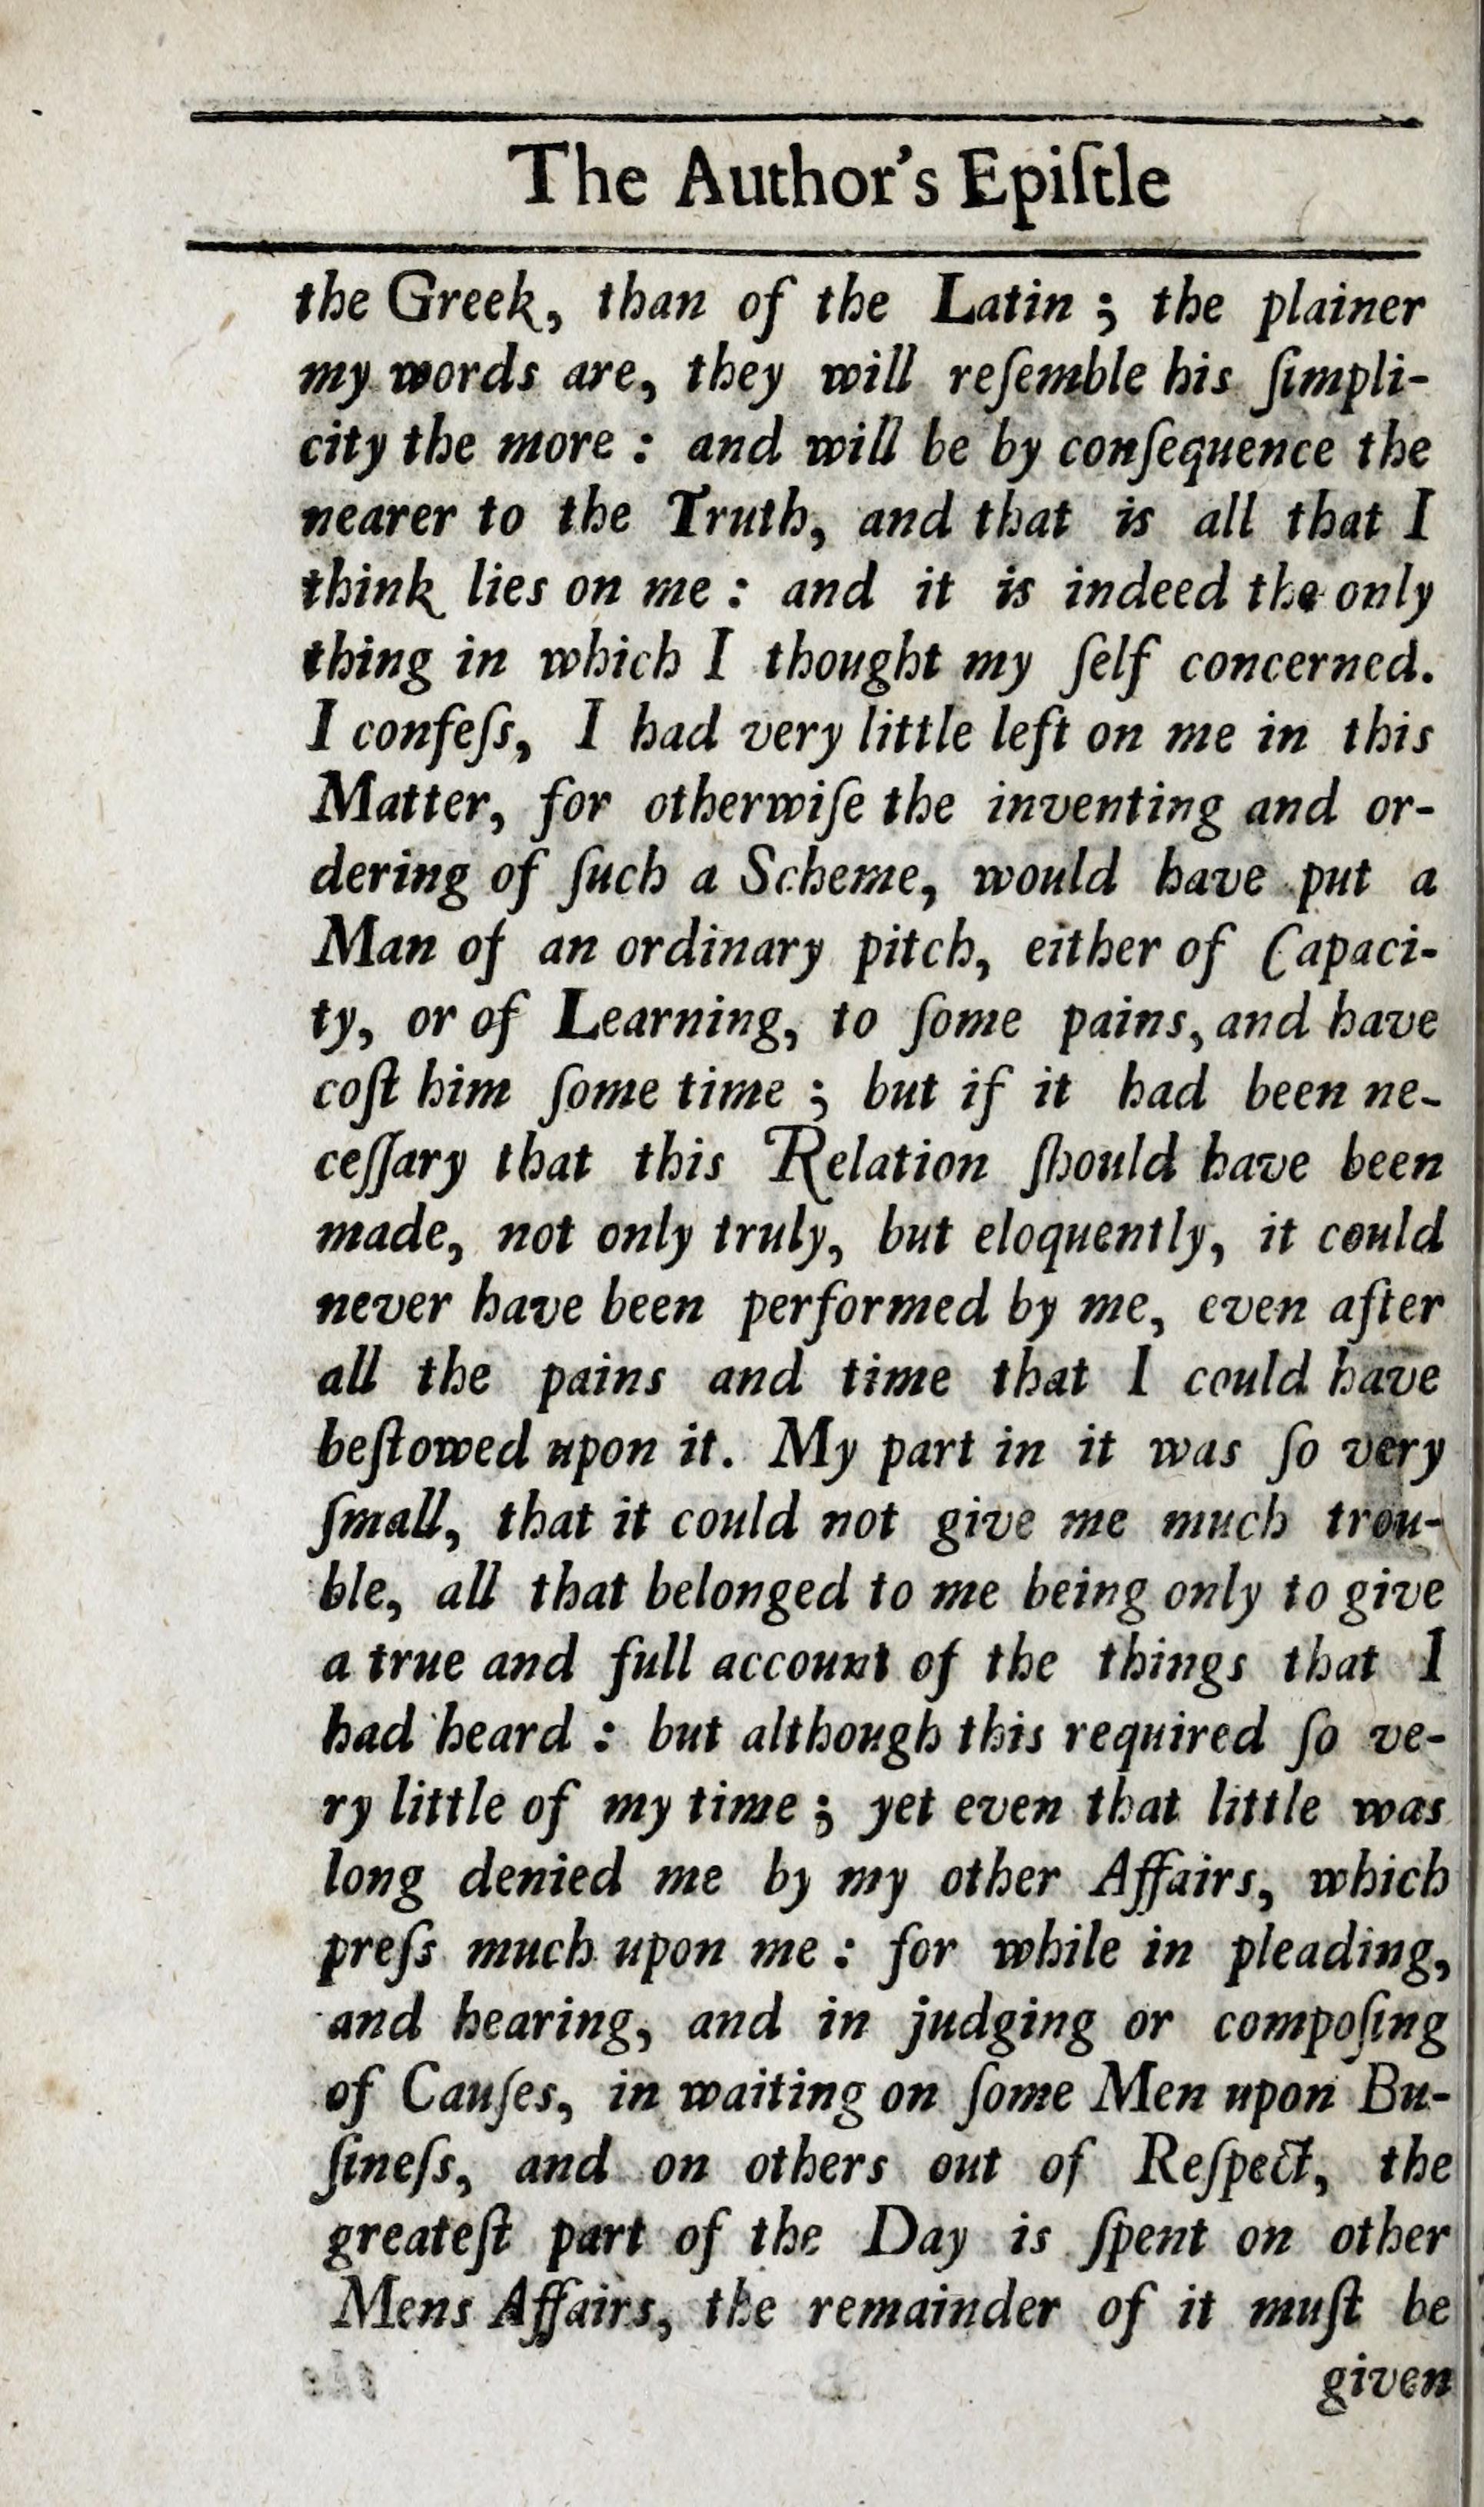 The Author's Epiſtle
the Greek, than of the Latin ; the plainer
my words are, they will reſemble his ſimpli-
city the more : and will be by conſequence the
nearer to the Truth, and that is all that I
think lies on me : and it is indeed the only
thing in which I thought my ſelf concerned.
I confeſs, I had very little left on me in this
Matter, for otherwiſe the inventing and or-
dering of ſuch a Scheme, would have put a
Man of an ordinary pitch, either of Capaci-
ty, or of Learning, to ſome pains, and have
coſt him ſome time ; but if it had been ne-
ceſſary that this Relation ſhould have been
made, not only truly, but eloquently, it could
never have been performed by me, even after
all the pains and time that I could have
beſtowed upon it. My part in it was ſo very
ſmall, that it could not give me much trou-
ble, all that belonged to me being only to give
a true and full account of the things that I
had heard : but although this required ſo ve-
ry little of my time ; yet even that little was
long denied me by my other Affairs, which
preſs much upon me : for while in pleading,
and hearing, and in judging or compoſing
of Cauſes, in waiting on ſome Men upon Bu-
ſineſs, and on others out of Reſpect, the
greateſt part of the Day is ſpent on other
Mens Affairs, the remainder of it muſt be
given